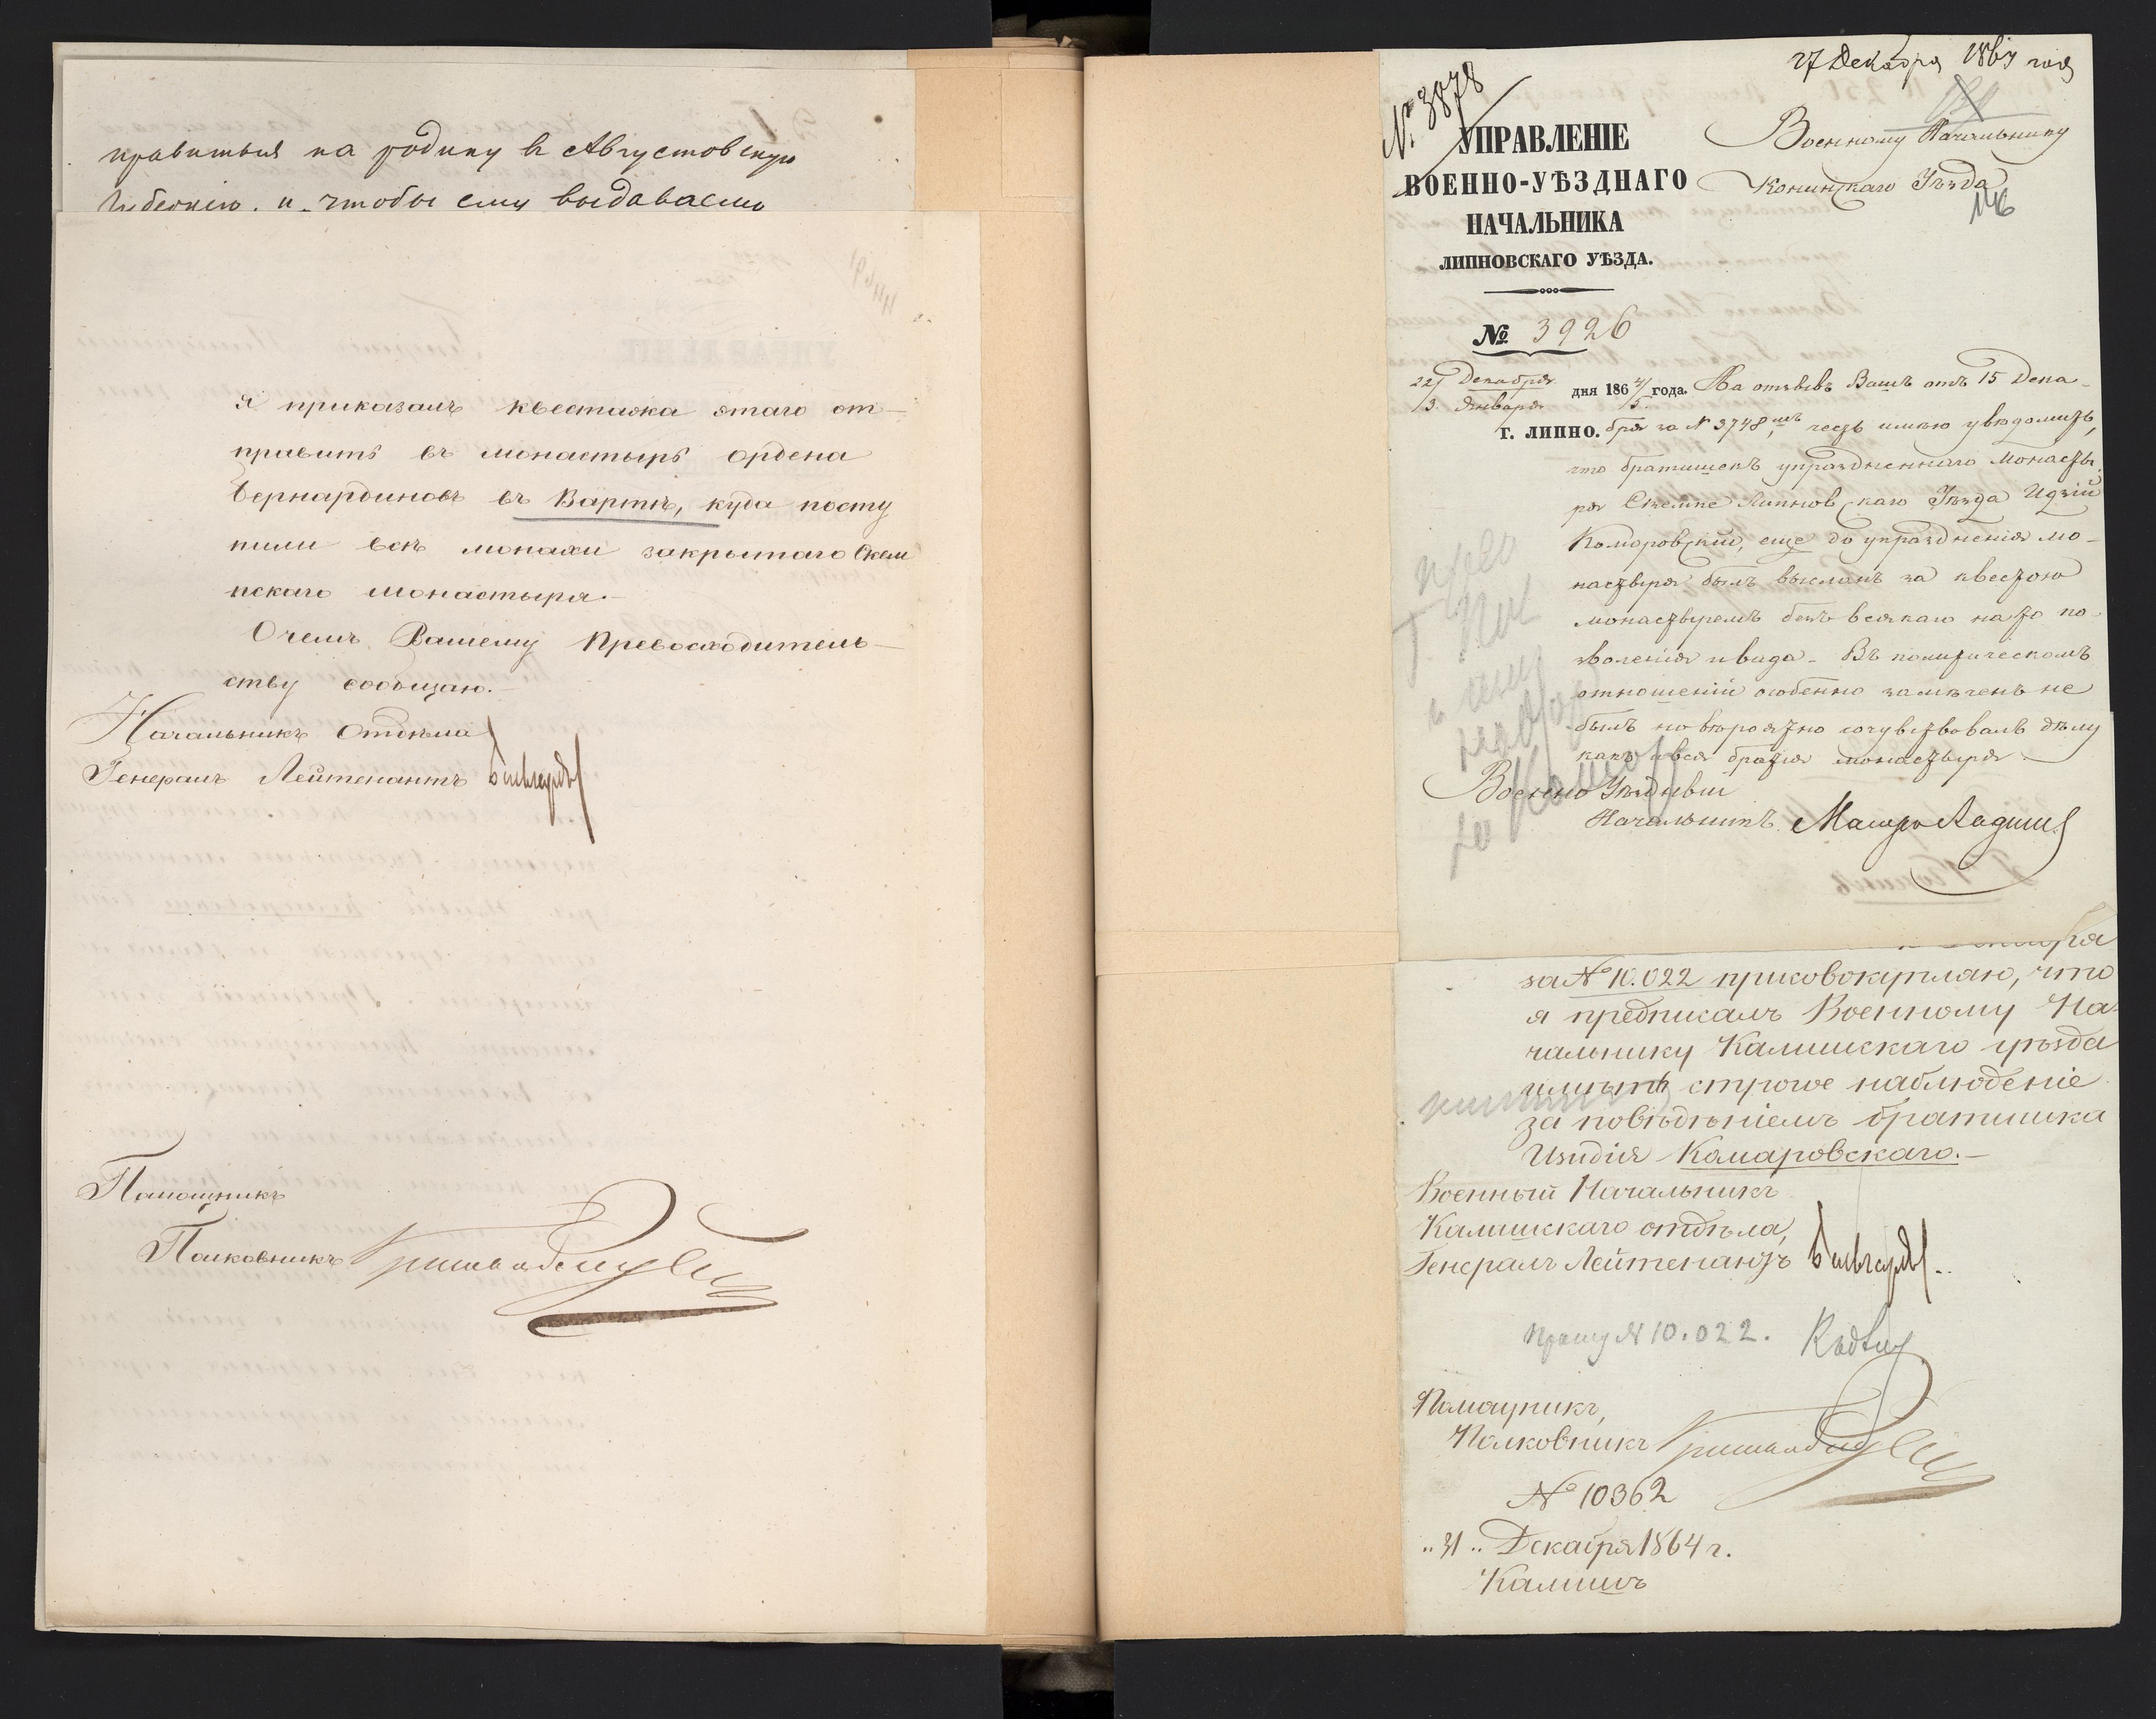 правиться на родину в Августовскую
Губернію. и чтобы ему выдаваемо
я приказалъ квестажа этаго от-
править въ монастырь ордена
Бернардиновъ въ Вартѣ, куда посту
пили всѣ монахи закрытаго Скем
пскаго монастыря.-
О чемъ Вашему Превосходитель-
ству сообщаю.-
Начальникъ Отдѣла
Генералъ Лейтенантъ
Помощникъ
Полковникъ
27 Декабря 1864 года
№ 3878
УПРАВЛЕНІЕ
ВОЕННО-УѢЗДНАГО
НАЧАЛЬНИКА
ЛИПНОВСКАГО УѢЗДА.
Военному Начальнику
Конинскаго Уѣзда
№ 3926
22/3 Декабря/Января дня 1864/5 года.
г. ЛИПНО.
На отзывъ Вашъ отъ 15 Дека-
бря за № 3748, честь имѣю увѣдомить,
что братишекъ упраздненнаго Монасты
ря Скемпе Липновскаго Уѣзда Идзій
Коморовскій, еще до упраздненія мо-
настыря былъ высланъ за квестою
монастыремъ безъ всякаго на то по-
зволенія и вида - Въ политическомъ
отношеніи особенно замѣченъ не
былъ но вѣроятно сочувствовалъ дѣлу
какъ и вся братія монастыря.
Военно Уѣздный
Начальникъ Маіоръ
за № 10.022 присовокупляю, что
я предписалъ Военному На-
чальнику Калишскаго уѣзда
имѣть строгое наблюденіе
за повѣдѣніемъ братишка
Изидія Комаровскаго.-
Военный Начальникъ
Калишскаго отдѣла,
Генералъ Лейтенантъ
Прошу № 10.022.
Помощникъ,
Полковникъ
№ 10362
"31" Декабря 1864 г.
Калишъ